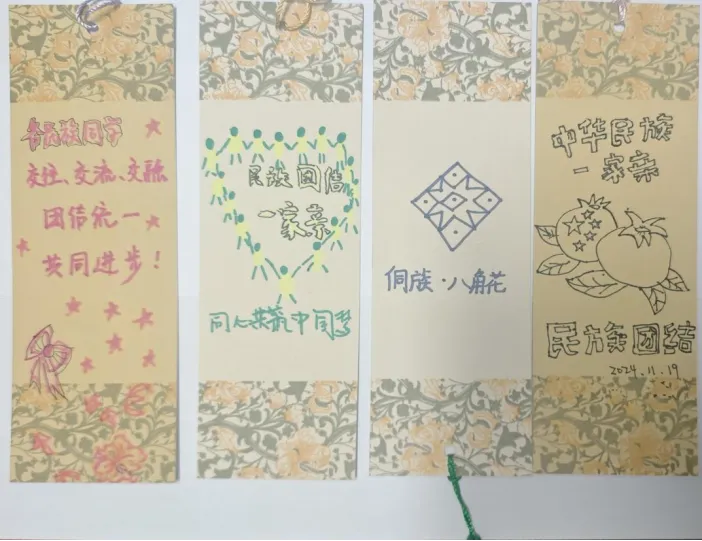 各民族同学
交往、交流、交融
团结统一
共同进步！
民族团结
一家亲
同心共筑中国梦
侗族·八角花
中华民族
一家亲
民族团结
2024.11.19